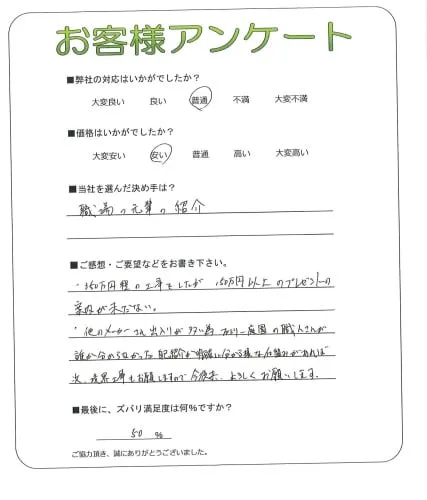 お客様アンケート
■弊社の対応はいかがでしたか？
大変良い 良い 普通 不満 大変不満
■価格はいかがでしたか？
大変安い 安い 普通 高い 大変高い
■当社を選んだ決め手は？
職場の先輩の紹介
■ご感想・ご要望などをお書き下さい。
・350万円程の工事をしたが 150万円以上のプレゼントの
案内が来てない。
・他のメーカーさん出入りが多い為 ファミリー庭園の職人さんが
誰か分からなかった 明確に分かる様な仕組みがあれば
次、外構工事もお願いしますので今後共、よろしくお願いします。
■最後に、ズバリ満足度は何％ですか？
50 %
ご協力頂き、誠にありがとうございました。